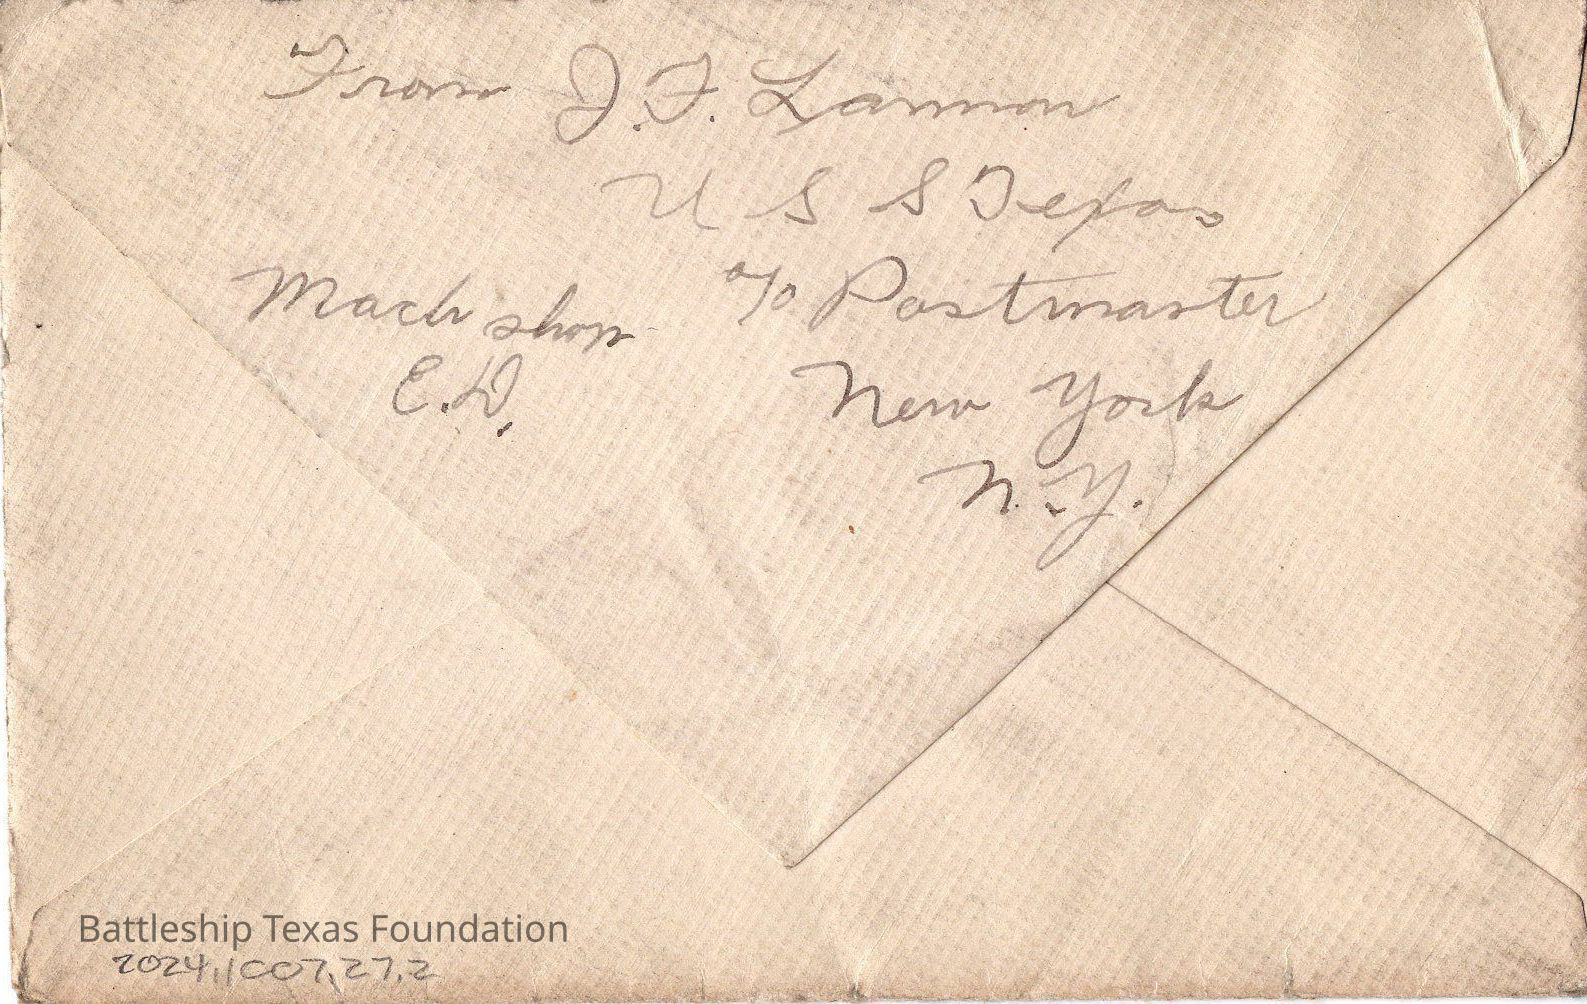 From J. F. Lannon
U S S Texas
c/o Postmaster
Mach shop
E. D.
New York
N. Y.
Battleship Texas Foundation
2024.1007.27.2